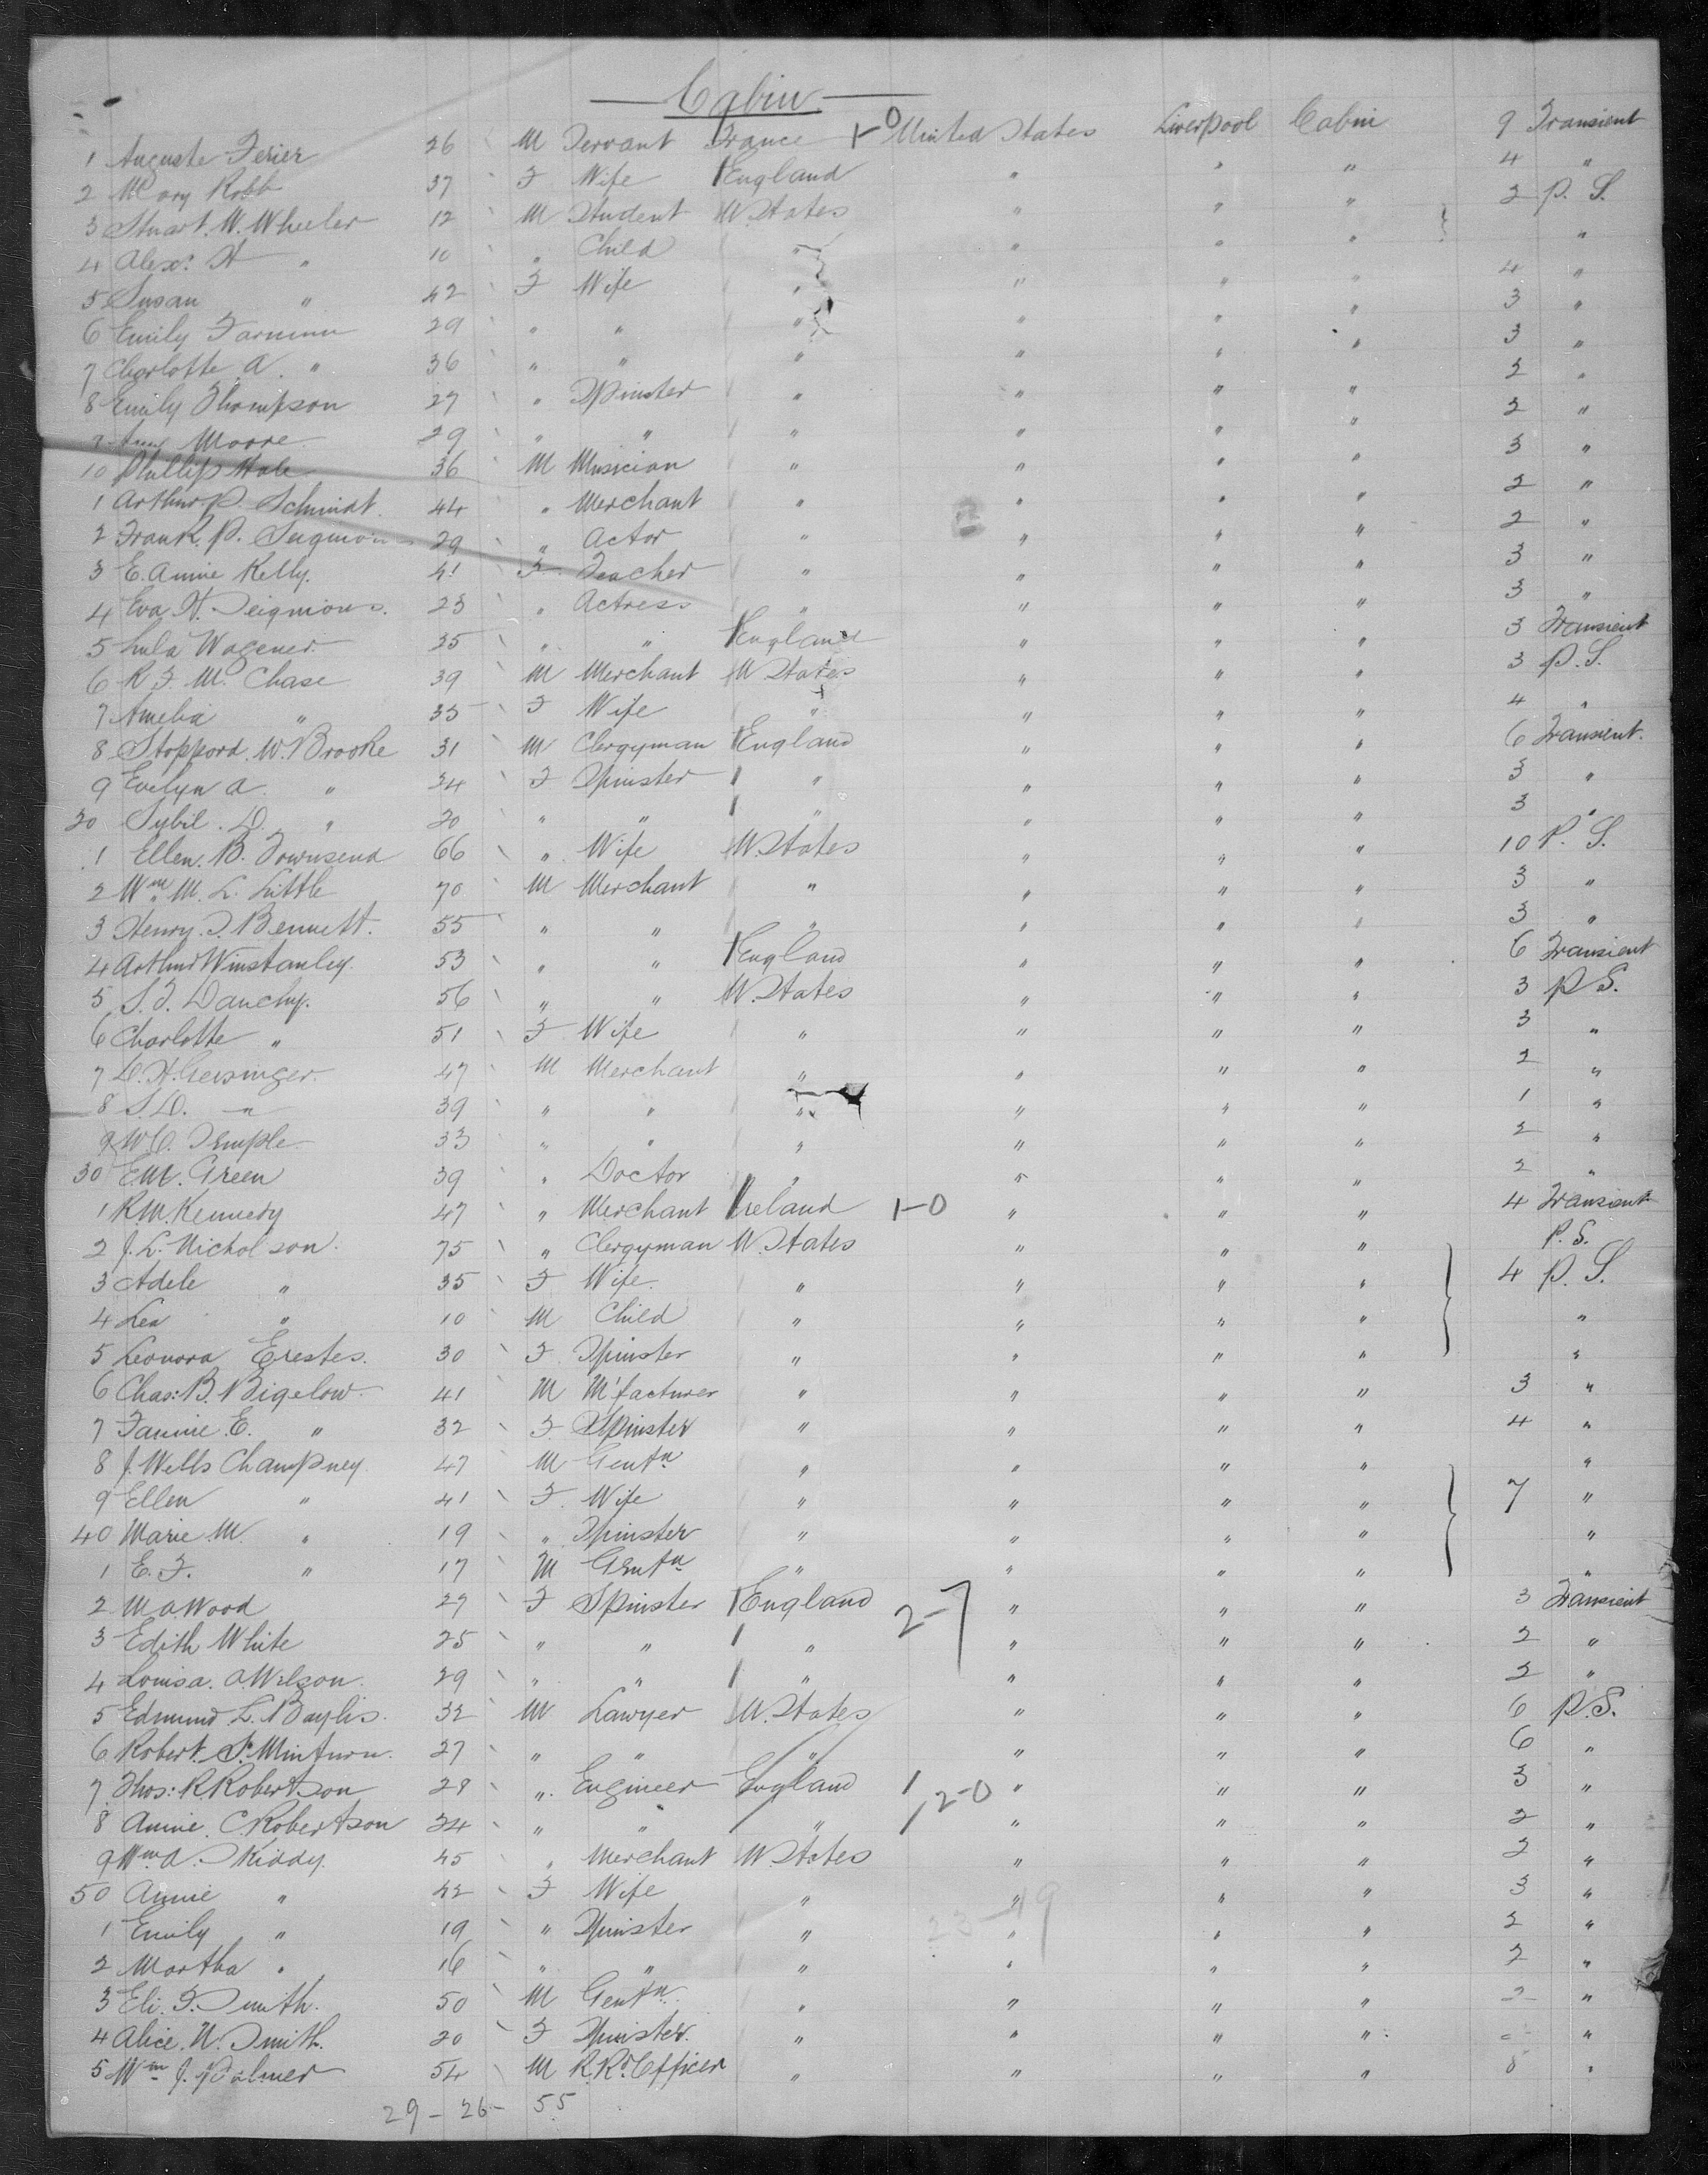 Cabin
1 Auguste Ferier 26 M Servant France 1-0 United States Liverpool Cabin 9 Transient
2 Mary Robb 37 F Wife England " " " 4 "
3 Stuart W. Wheeler 12 M Student U. States " " " 2 P. S.
4 Alexr H " 10 " Child " " " " "
5 Susan " 42 F Wife " " " " 4 "
6 Emily Farnum 29 " " " " " " 3 "
7 Charlotte A. " 36 " " " " " " 3 "
8 Emily Thompson 27 " Spinster " " " " 2 "
9 Moore 29 " " " " " " 2 "
10 Phillip Hale 36 M Musician " " " " 3 "
1 Arthur P. Schmidt. 44 " Merchant " " " " 2 "
2 Frank. P. 29 " Actor " " " " 2 "
3 E. Annie Kelly. 41 F Teacher " " " " 3 "
4 Eva H. Seigmions. 23 " Actress " " " " 3 "
5 Lula Wagener. 35 " " England " " " 3 Transient
6 R F. Mc Chase 39 M Merchant U States " " " 3 P. S.
7 Amelia " 35 F Wife " " " " 4 "
8 Stoppord. W. Brooke 31 M Clergyman England " " " 6 Transient.
9 Evelyn A. " 24 F Spinster " " " " 3 "
20 Sybil. D. " 20 " " " " " " 3 "
1 Ellen. B. Townsend 66 " Wife U. States " " " 10 P. S.
2 Wm M. L. Little 70 M Merchant " " " " 3 "
3 Henry. T. Bennett. 55 " " " " " " 3 "
4 Arthur Winstanley. 53 " " England " " " 6 Transient
5 S. F. Danchy. 56 " " U. States " " " 3 P S.
6 Charlotte " 51 F Wife " " " " 3 "
7 L. H. Gersinger. 47 M Merchant " " " " 2 "
8 S D. " 39 " " " " " " 1 "
9 W C. Temple 33 " " " " " " 2 "
30 E M. Green 39 " Doctor " " " " 2 "
1 R. M. Kennedy 47 " Merchant Ireland 1-0 " " " 4 Transient
2 J. L. Nicholson. 75 " Clergyman U. States " " " P. S.
3 Adele " 35 F Wife. " " " " 4 P. S.
4 Lea " 10 M Child " " " " "
5 Leonora Erestes. 30 F. Spinster " " " " "
6 Chas: B. Bigelow 41 M M'facturer " " " " 3 "
7 Fannie. E. " 32 F. Spinster " " " " 4 "
8 J. Wells Champney. 47 M Gentn " " " " "
9 Ellen " 41 F. Wife " " " " 7 "
40 Marie M. " 19 " Spinster " " " " "
1 E. F. " 17 M Gentn " " " " "
2 M A Wood 27 F Spinster England 2-7 " " " 3 Transient
3 Edith White 25 " " " " " " 2 "
4 Louisa. A. Wilson. 29 " " " " " " 2 "
5 Edmund L. Baylis. 32 M Lawyer U. States " " " 6 P. S.
6 Robert. S. Minturn. 27 " " " " " " 6 "
7 Thos: R. Robertson 28 " Engineer England 12-0 " " " 3 "
8 Annie. C. Robertson 24 " " " " " " 2 "
9 Wm. A. Skiddy. 45 " Merchant U States " " " 2 "
50 Annie " 42 F Wife " " " " 3 "
1 Emily " 19 " Spinster " 23-19 " " " 2 "
2 Martha " 16 " " " " " " 2 "
3 Eli. F. Smith. 50 M Gentn " " " " 2 "
4 Alice. N. Smith. 20 F Spinster. " " " " "
5 Wm J. Palmer 54 M R. Rd. Officer " " " " 8 "
29 - 26 - 55